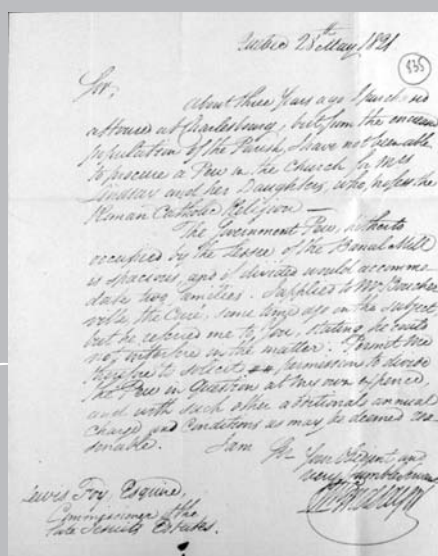 Quebec 28th May 1821
835
Sir,
About three Years ago I purchased
a House at Charlesbourg, but from the encreased
population of the Parish, I have not been able
to procure a Pew in the Church for Mrs
Lindsay and her Daughters, who profess the
Roman Catholic Religion —
The Government Pew, hitherto
occupied by the Lessee of the Banal Mill
is spacious, and if divided would accommo
date two families. I applied to Mr Boucher
ville, the Curé, some time ago on the subject
but he referred me to You, stating he could
not interfere in the matter. Permit me
therefore to solicit permission to divide
the Pew in Question at my own expence,
and with such other additional annual
Charge and Conditions as may be deemed rea-
sonable. I am Sir
Your Obedient and
very humble servant
Lindsay
Lewis Foy, Esquire,
Commissioner of the
late Jesuits Estates.